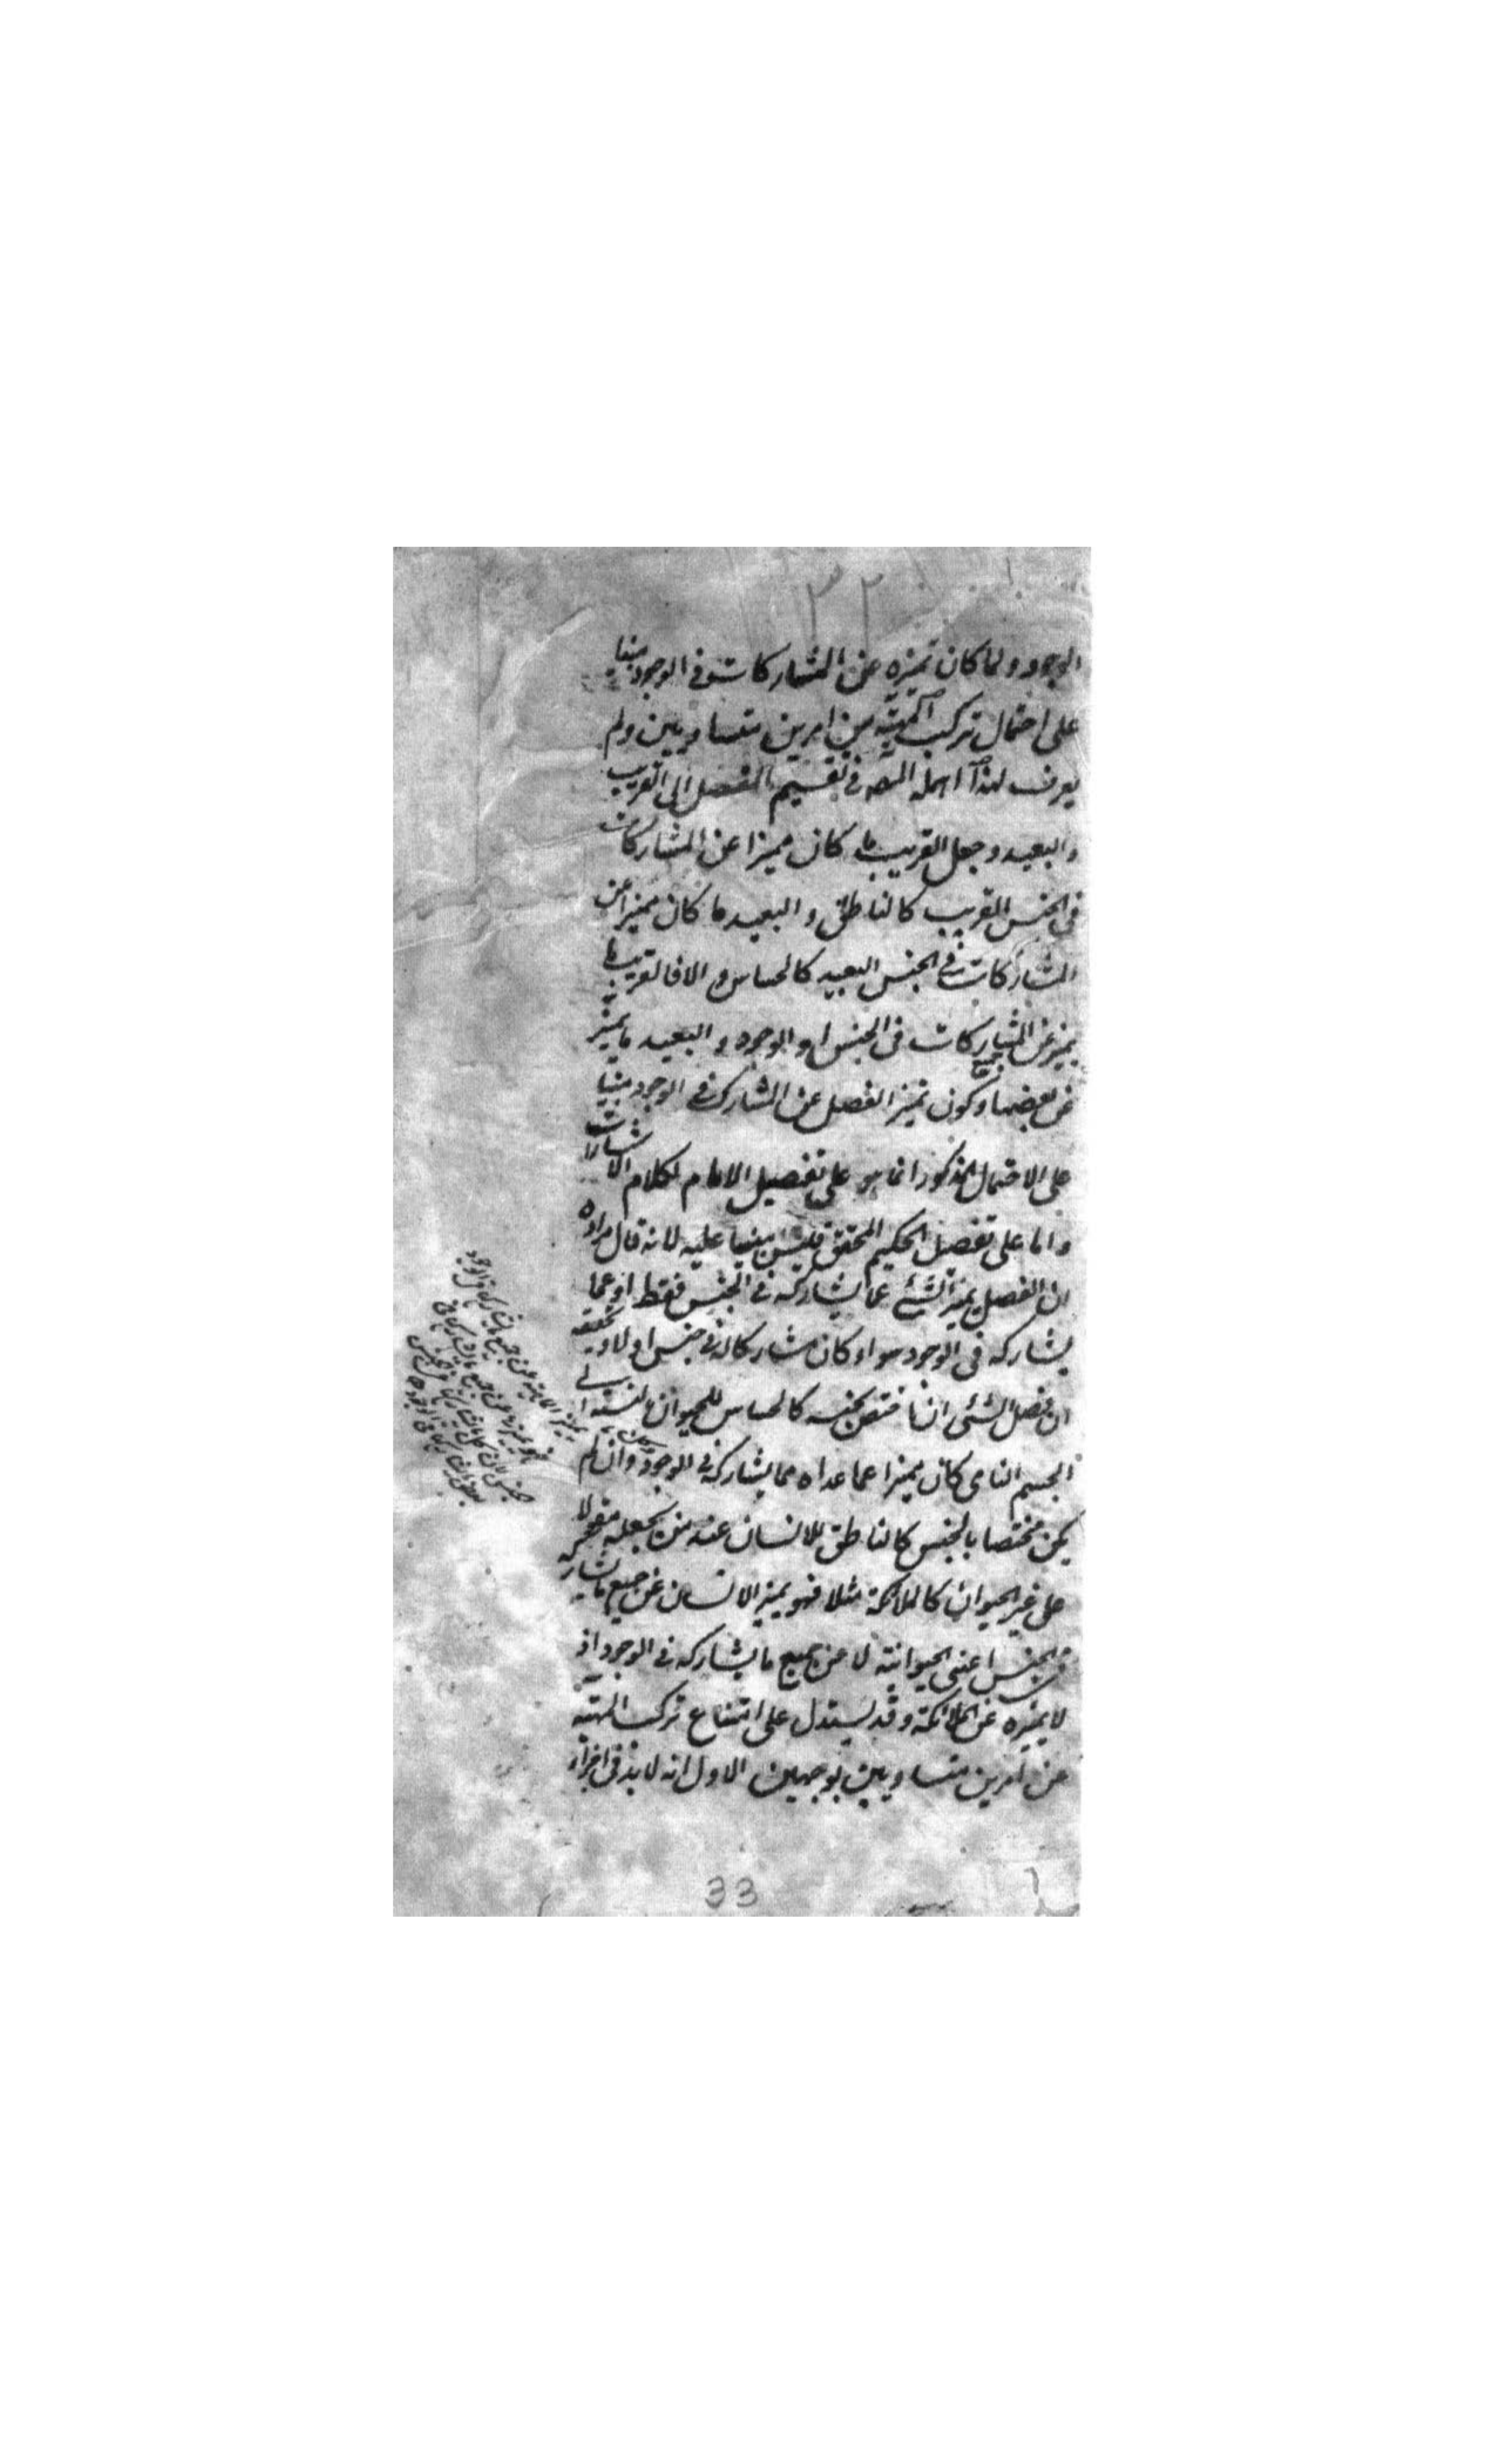 ٣٢
الوجود ولما كان تميزه عن المشاركات في الوجود مبنيا
على احتمال تركب الماهية من امرين متساويين ولم
يعرف لهذا اهمله المصه في تقسيم الفصل الى القريب
والبعيد وجعل القريب ما كان مميزا عن المشاركات
في الجنس القريب كالناطق والبعيد ما كان مميزا عن
المشاركات في الجنس البعيد كالحساس والا فالقريب ما
يميز عن المشاركات في الجنس او الوجود والبعيد ما يميز
عن بعضها وكون تميز الفصل عن المشارك في الوجود مبنيا
على الاحتمال المذكور انما هو على تفصيل الامام لكلام الاشارات
واما على تفصيل الحكيم المحقق فليس مبنيا عليه لانه قال مراده
ان الفصل يميز الشئ عما يشاركه في الجنس فقط او عما
يشاركه في الوجود سواء كان مشاركا له في جنس اولا وتحقيقه
ان فصل الشئ ان اختص بجنسه كالحساس للحيوان بالنسبة الى
الجسم النامي كان مميزا عما عداه مما يشاركه في الوجود وان لم
يكن مختصا بالجنس كالناطق للانسان عند من يجعله مقولا
على غير الحيوان كالملائكة مثلا فهو يميز الانسان عن جميع ما يشاركه
في الجنس اعنى الحيوانية لا عن جميع ما يشاركه في الوجود اذ
لا يميزه عن الملائكة وقد يستدل على امتناع تركب المهية
من امرين متساويين بوجهين الاول انه لا بد في اجزاء
يميز الماهية عن جميع ما يشاركها في الوجود
33